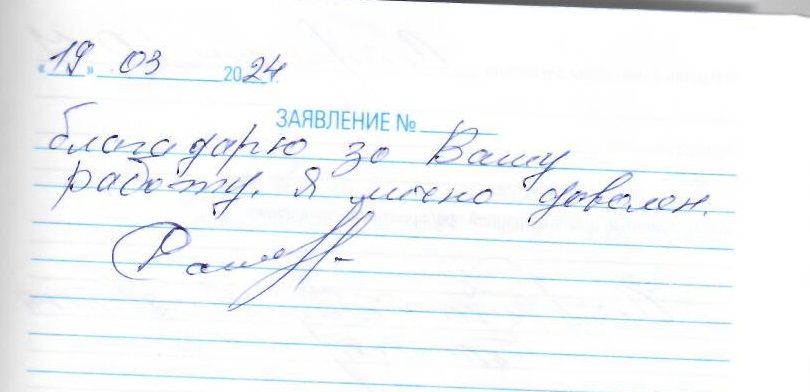 «19» 03 2024
ЗАЯВЛЕНИЕ №
благадарю за Вашу
работу. Я лично доволен.